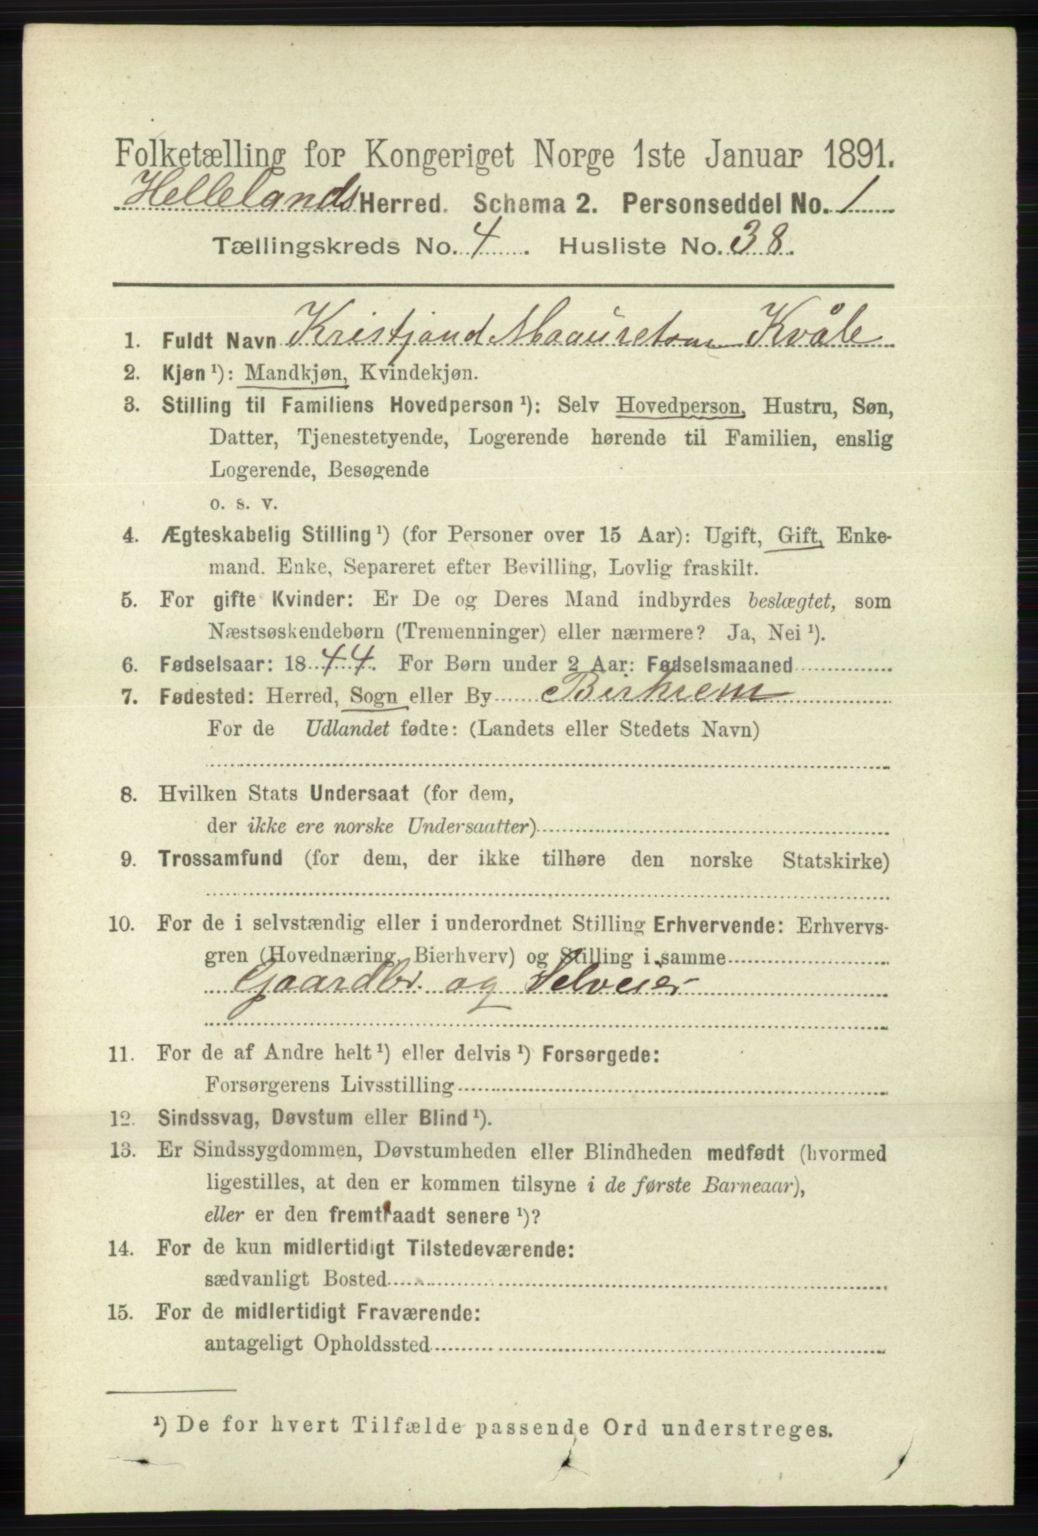 Folketælling for Kongeriget Norge 1ste Januar 1891.
Hellelands Herred. Schema 2. Personseddel No. 1
Tællingskreds No. 4. Husliste No. 38.
1. Fuldt Navn Kristjand Maauretsen Kvåle
2. Kjøn¹): Mandkjøn, Kvindekjøn.
3. Stilling til Familiens Hovedperson¹): Selv Hovedperson, Hustru, Søn,
Datter, Tjenestetyende, Logerende hørende til Familien, enslig
Logerende, Besøgende
o. s. v.
4. Ægteskabelig Stilling¹) (for Personer over 15 Aar): Ugift, Gift, Enke-
mand. Enke, Separeret efter Bevilling, Lovlig fraskilt.
5. For gifte Kvinder: Er De og Deres Mand indbyrdes beslægtet, som
Næstsøskendebørn (Tremenninger) eller nærmere? Ja, Nei¹).
6. Fødselsaar: 1844. For Børn under 2 Aar: Fødselsmaaned
7. Fødested: Herred, Sogn eller By Birkrem
For de Udlandet fødte: (Landets eller Stedets Navn)
8. Hvilken Stats Undersaat (for dem,
der ikke ere norske Undersaatter)
9. Trossamfund (for dem, der ikke tilhøre den norske Statskirke)
10. For de i selvstændig eller i underordnet Stilling Erhvervende: Erhvervs-
gren (Hovednæring, Bierhverv) og Stilling i samme
Gaardbr. og Selveier
11. For de af Andre helt¹) eller delvis¹) Forsørgede:
Forsørgerens Livsstilling
12. Sindssvag, Døvstum eller Blind¹).
13. Er Sindssygdommen, Døvstumheden eller Blindheden medfødt (hvormed
ligestilles, at den er kommen tilsyne i de første Barneaar),
eller er den fremtraadt senere¹)?
14. For de kun midlertidigt Tilstedeværende:
sædvanligt Bosted
15. For de midlertidigt Fraværende:
antageligt Opholdssted
¹) De for hvert Tilfælde passende Ord understreges.